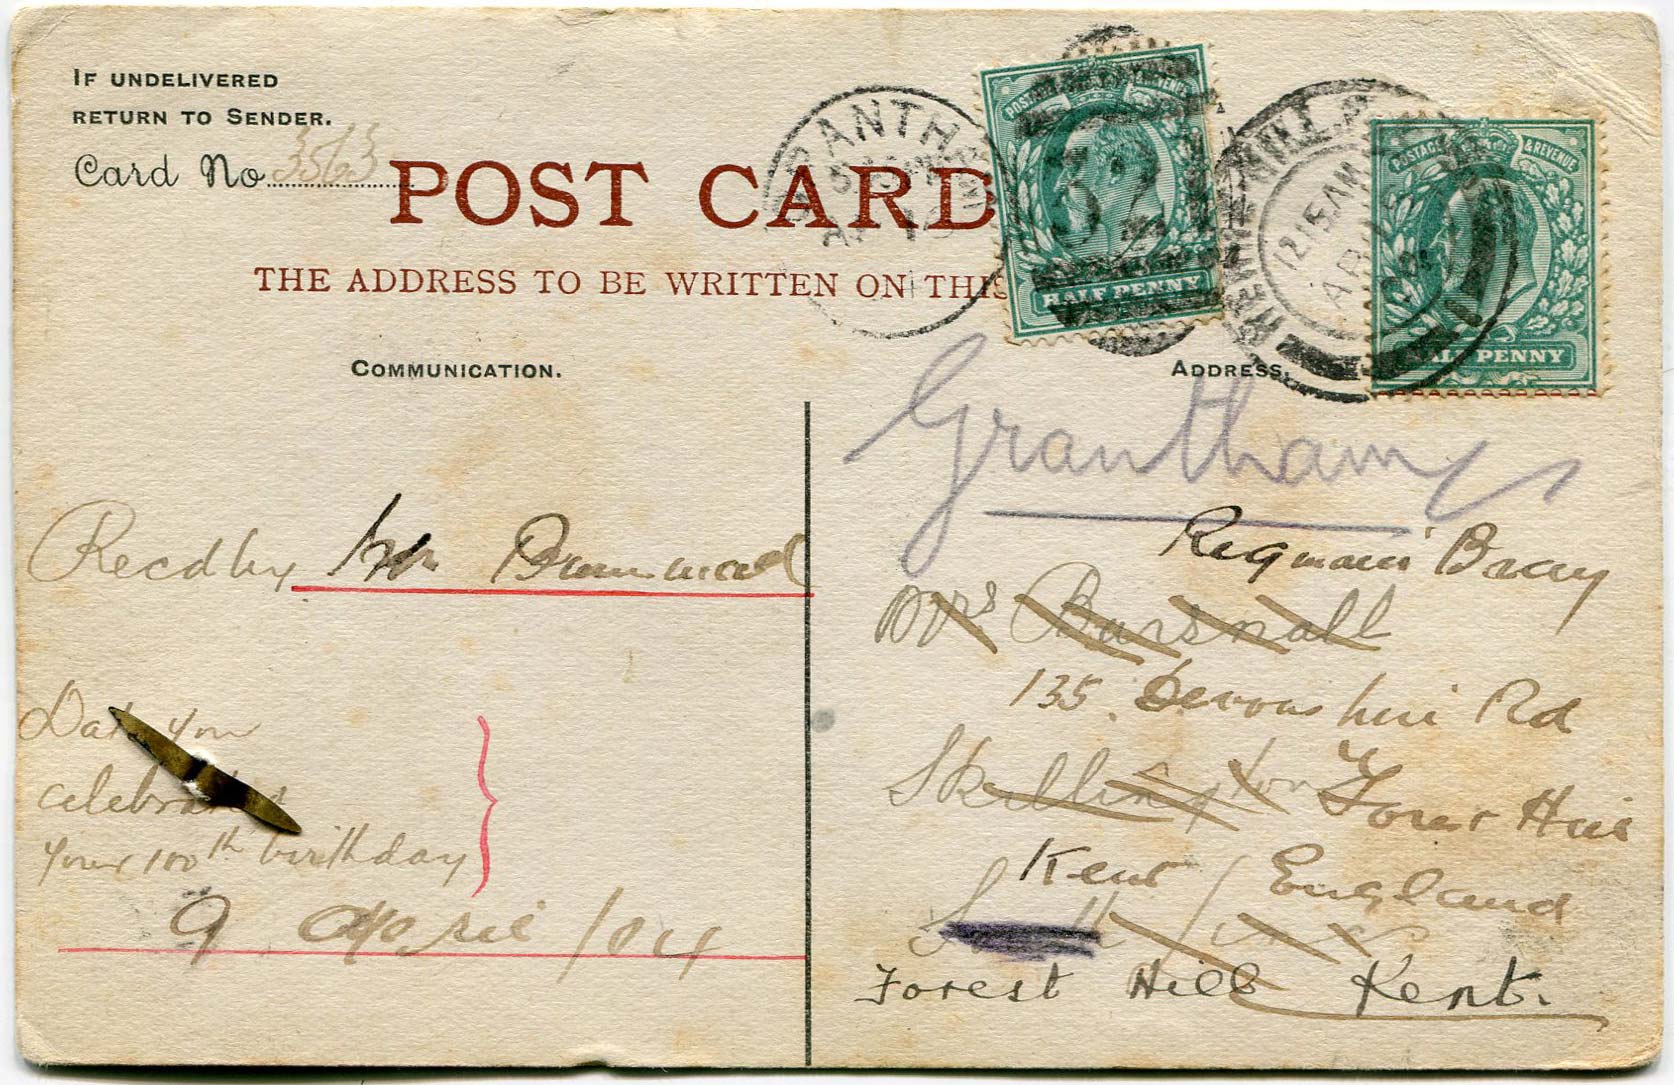 IF UNDELIVERED
RETURN TO SENDER.
Card No 3563
POST CARD
THE ADDRESS TO BE WRITTEN ON THIS
COMMUNICATION.
ADDRESS.
GRANTHAM
321
POSTAGE & REVENUE
HALF PENNY
12.15 AM
AP 15
POSTAGE & REVENUE
HALF PENNY
Grantham
Recd by Mr
Date you
celebrated
your 100th birthday
9 April /04
Bray
Mrs
135. Devonshire Rd
Skillington Forest Hill
Kent England
Forest Hill Kent.